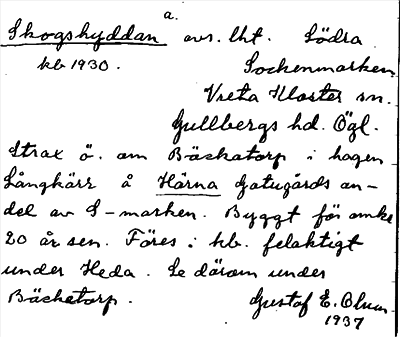 a.
Skogshyddan avs. lht. Södra
kb 1930. Sockenmarken
Vreta Kloster sn.
Gullbergs hd. Ögl.
Strax ö. om Bäckatorp i hagen
Långkärr å Härna Gatugårds an-
del av S-marken. Byggt för omkr
20 år sen. Föres i kb. felaktigt
under Heda. Se därom under
Bäcketorp. Gustaf E. Blum.
1937